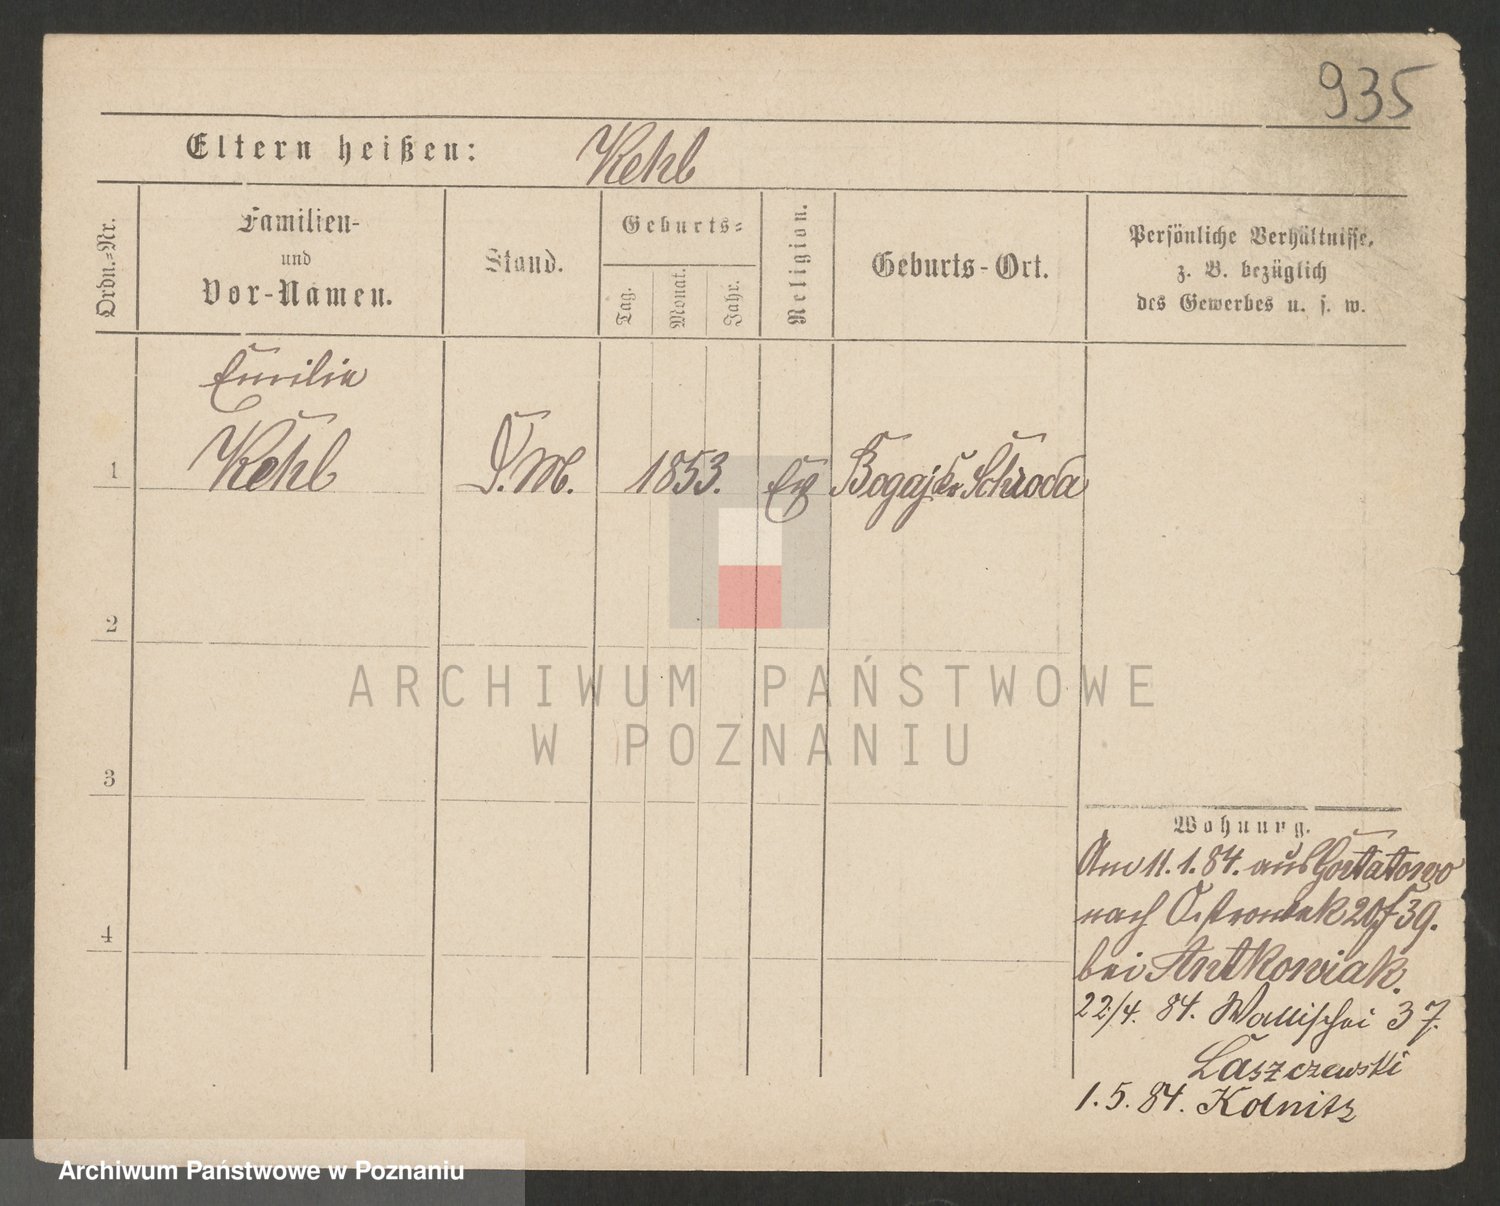 935
Eltern heißen: Kehl
Ordn.-Nr.
Familien-
und
Vor-Namen.
Stand.
Geburts-
Tag.
Monat.
Jahr.
Religion.
Geburts-Ort.
Persönliche Verhältnisse,
z. B. bezüglich
des Gewerbes u. s. w.
Emilie
1 Kehl D. M. 1853. Ev Schroda
2
3
4
Wohnung.
Am 11.1.84. aus Gortatowo
nach Ostrowek 20/39.
bei Antkowiak.
22./4. 84. Wallischei 37.
Laszczewski
1.5.84. Kolnitz
ARCHIWUM PAŃSTWOWE
W POZNANIU
Archiwum Państwowe w Poznaniu